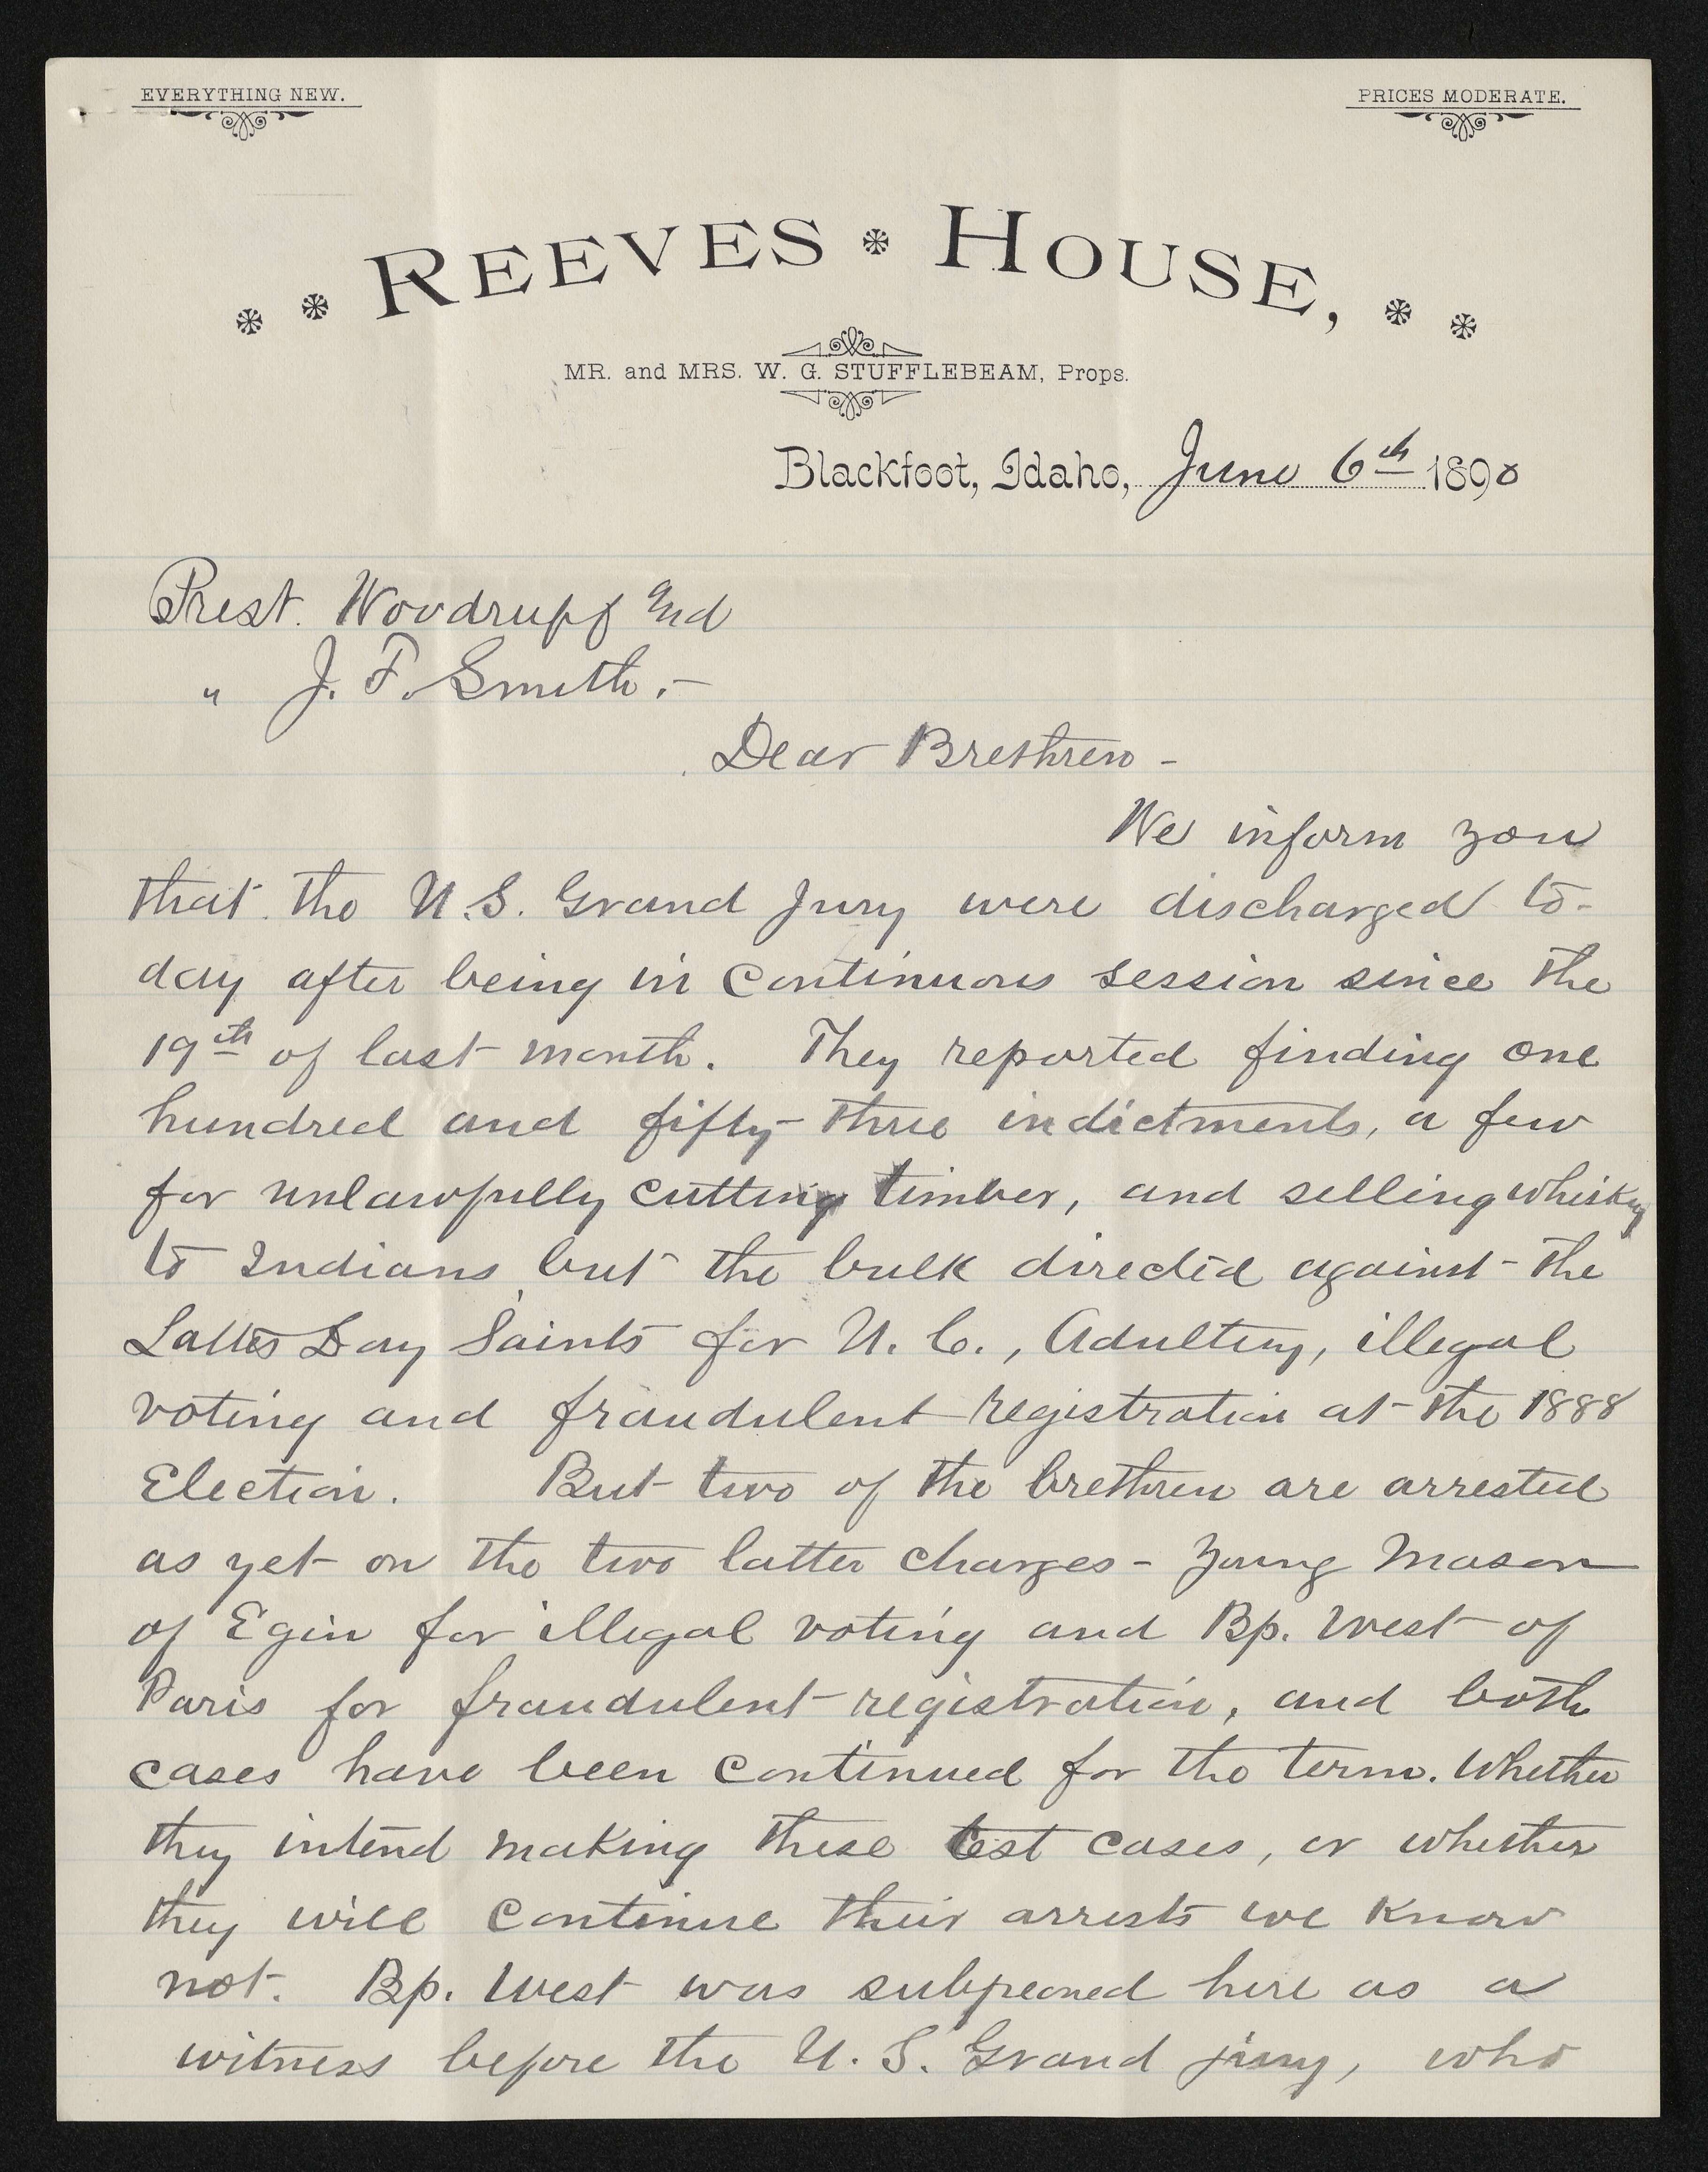 EVERYTHING NEW.
PRICES MODERATE.
REEVES HOUSE,
MR. and MRS. W. G. STUFFLEBEAM, Props.
Blackfoot, Idaho, June 6th 1890
Prest. Woodruff and
" J. F. Smith.-
Dear Brethren -
We inform you
that the U.S. Grand Jury were discharged to-
day after being in continuous session since the
19th of last month. They reported finding one
hundred and fifty-three indictments, a few
for unlawfully cutting timber, and selling whiskey
to Indians, but the bulk directed against the
Latter Day Saints for U. C., Adultery, illegal
voting and fraudulent registration at the 1888
Election. But two of the brethren are arrested
as yet on the two latter charges - Young Mason
of Egin for illegal voting and Bp. West of
Paris for fraudulent registration, and both
cases have been continued for the term. Whether
they intend making these test cases, or whether
they will continue their arrests we know
not. Bp. West was subpeoned here as a
witness before the U. S. Grand jury, who